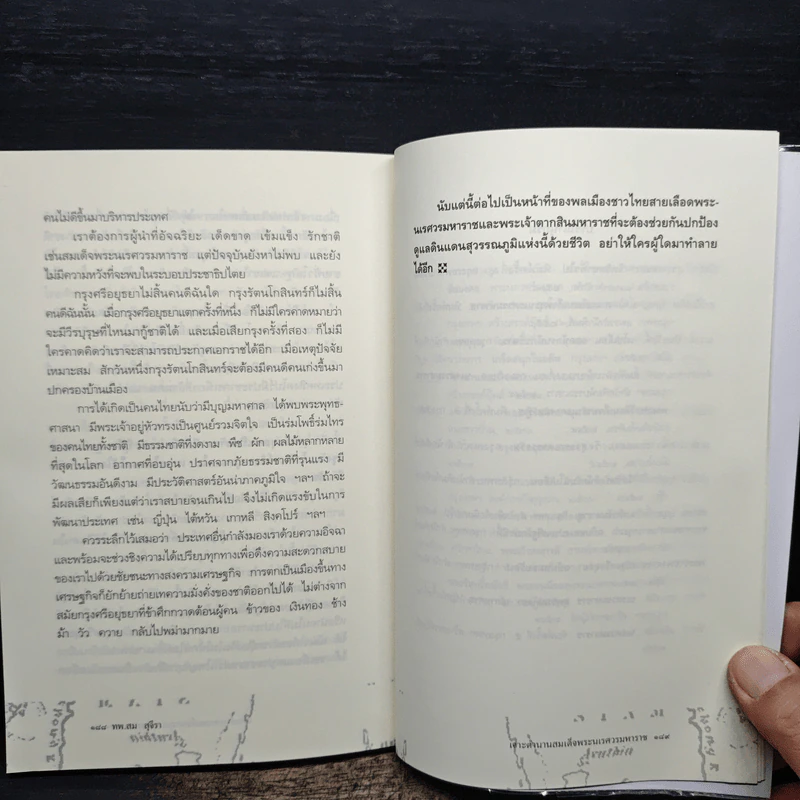 คนไม่ดีขึ้นมาบริหารประเทศ
เราต้องการผู้นำที่อัจฉริยะ เด็ดขาด เข้มแข็ง รักชาติ
เช่นสมเด็จพระนเรศวรมหาราช แต่ปัจจุบันยังหาไม่พบ และยัง
ไม่มีความหวังที่จะพบในระบอบประชาธิปไตย
กรุงศรีอยุธยาไม่สิ้นคนดีฉันใด กรุงรัตนโกสินทร์ก็ไม่สิ้น
คนดีฉันนั้น เมื่อกรุงศรีอยุธยาแตกครั้งที่หนึ่ง ก็ไม่มีใครคาดหมายว่า
จะมีวีรบุรุษที่ไหนมากู้ชาติได้ และเมื่อเสียกรุงครั้งที่สอง ก็ไม่มี
ใครคาดคิดว่าเราจะสามารถประกาศเอกราชได้อีก เมื่อเหตุปัจจัย
เหมาะสม สักวันหนึ่งกรุงรัตนโกสินทร์จะต้องมีคนดีคนเก่งขึ้นมา
ปกครองบ้านเมือง
การได้เกิดเป็นคนไทยนับว่ามีบุญมหาศาล ได้พบพระพุทธ-
ศาสนา มีพระเจ้าอยู่หัวทรงเป็นศูนย์รวมจิตใจ เป็นร่มโพธิ์ร่มไทร
ของคนไทยทั้งชาติ มีธรรมชาติที่งดงาม พืช ผัก ผลไม้หลากหลาย
ที่สุดในโลก อากาศที่อบอุ่น ปราศจากภัยธรรมชาติที่รุนแรง มี
วัฒนธรรมอันดีงาม มีประวัติศาสตร์อันน่าภาคภูมิใจ ฯลฯ ถ้าจะ
มีผลเสียก็เพียงแต่ว่าเราสบายจนเกินไป จึงไม่เกิดแรงขับในการ
พัฒนาประเทศ เช่น ญี่ปุ่น ไต้หวัน เกาหลี สิงคโปร์ ฯลฯ
ควรระลึกไว้เสมอว่า ประเทศอื่นกำลังมองเราด้วยความอิจฉา
และพร้อมจะช่วงชิงความได้เปรียบทุกทางเพื่อดึงความสะดวกสบาย
ของเราไปด้วยชัยชนะทางสงครามเศรษฐกิจ การตกเป็นเมืองขึ้นทาง
เศรษฐกิจก็ยักย้ายถ่ายเทความมั่งคั่งของชาติออกไปได้ ไม่ต่างจาก
สมัยกรุงศรีอยุธยาที่ข้าศึกกวาดต้อนผู้คน ข้าวของ เงินทอง ช้าง
ม้า วัว ควาย กลับไปพม่ามากมาย
๑๘๘ ทพ.สม สุจีรา
นับแต่นี้ต่อไปเป็นหน้าที่ของพลเมืองชาวไทยสายเลือดพระ-
นเรศวรมหาราชและพระเจ้าตากสินมหาราชที่จะต้องช่วยกันปกป้อง
ดูแลดินแดนสุวรรณภูมิแห่งนี้ด้วยชีวิต อย่าให้ใครผู้ใดมาทำลาย
ได้อีก
เจาะตำนานสมเด็จพระนเรศวรมหาราช ๑๘๙